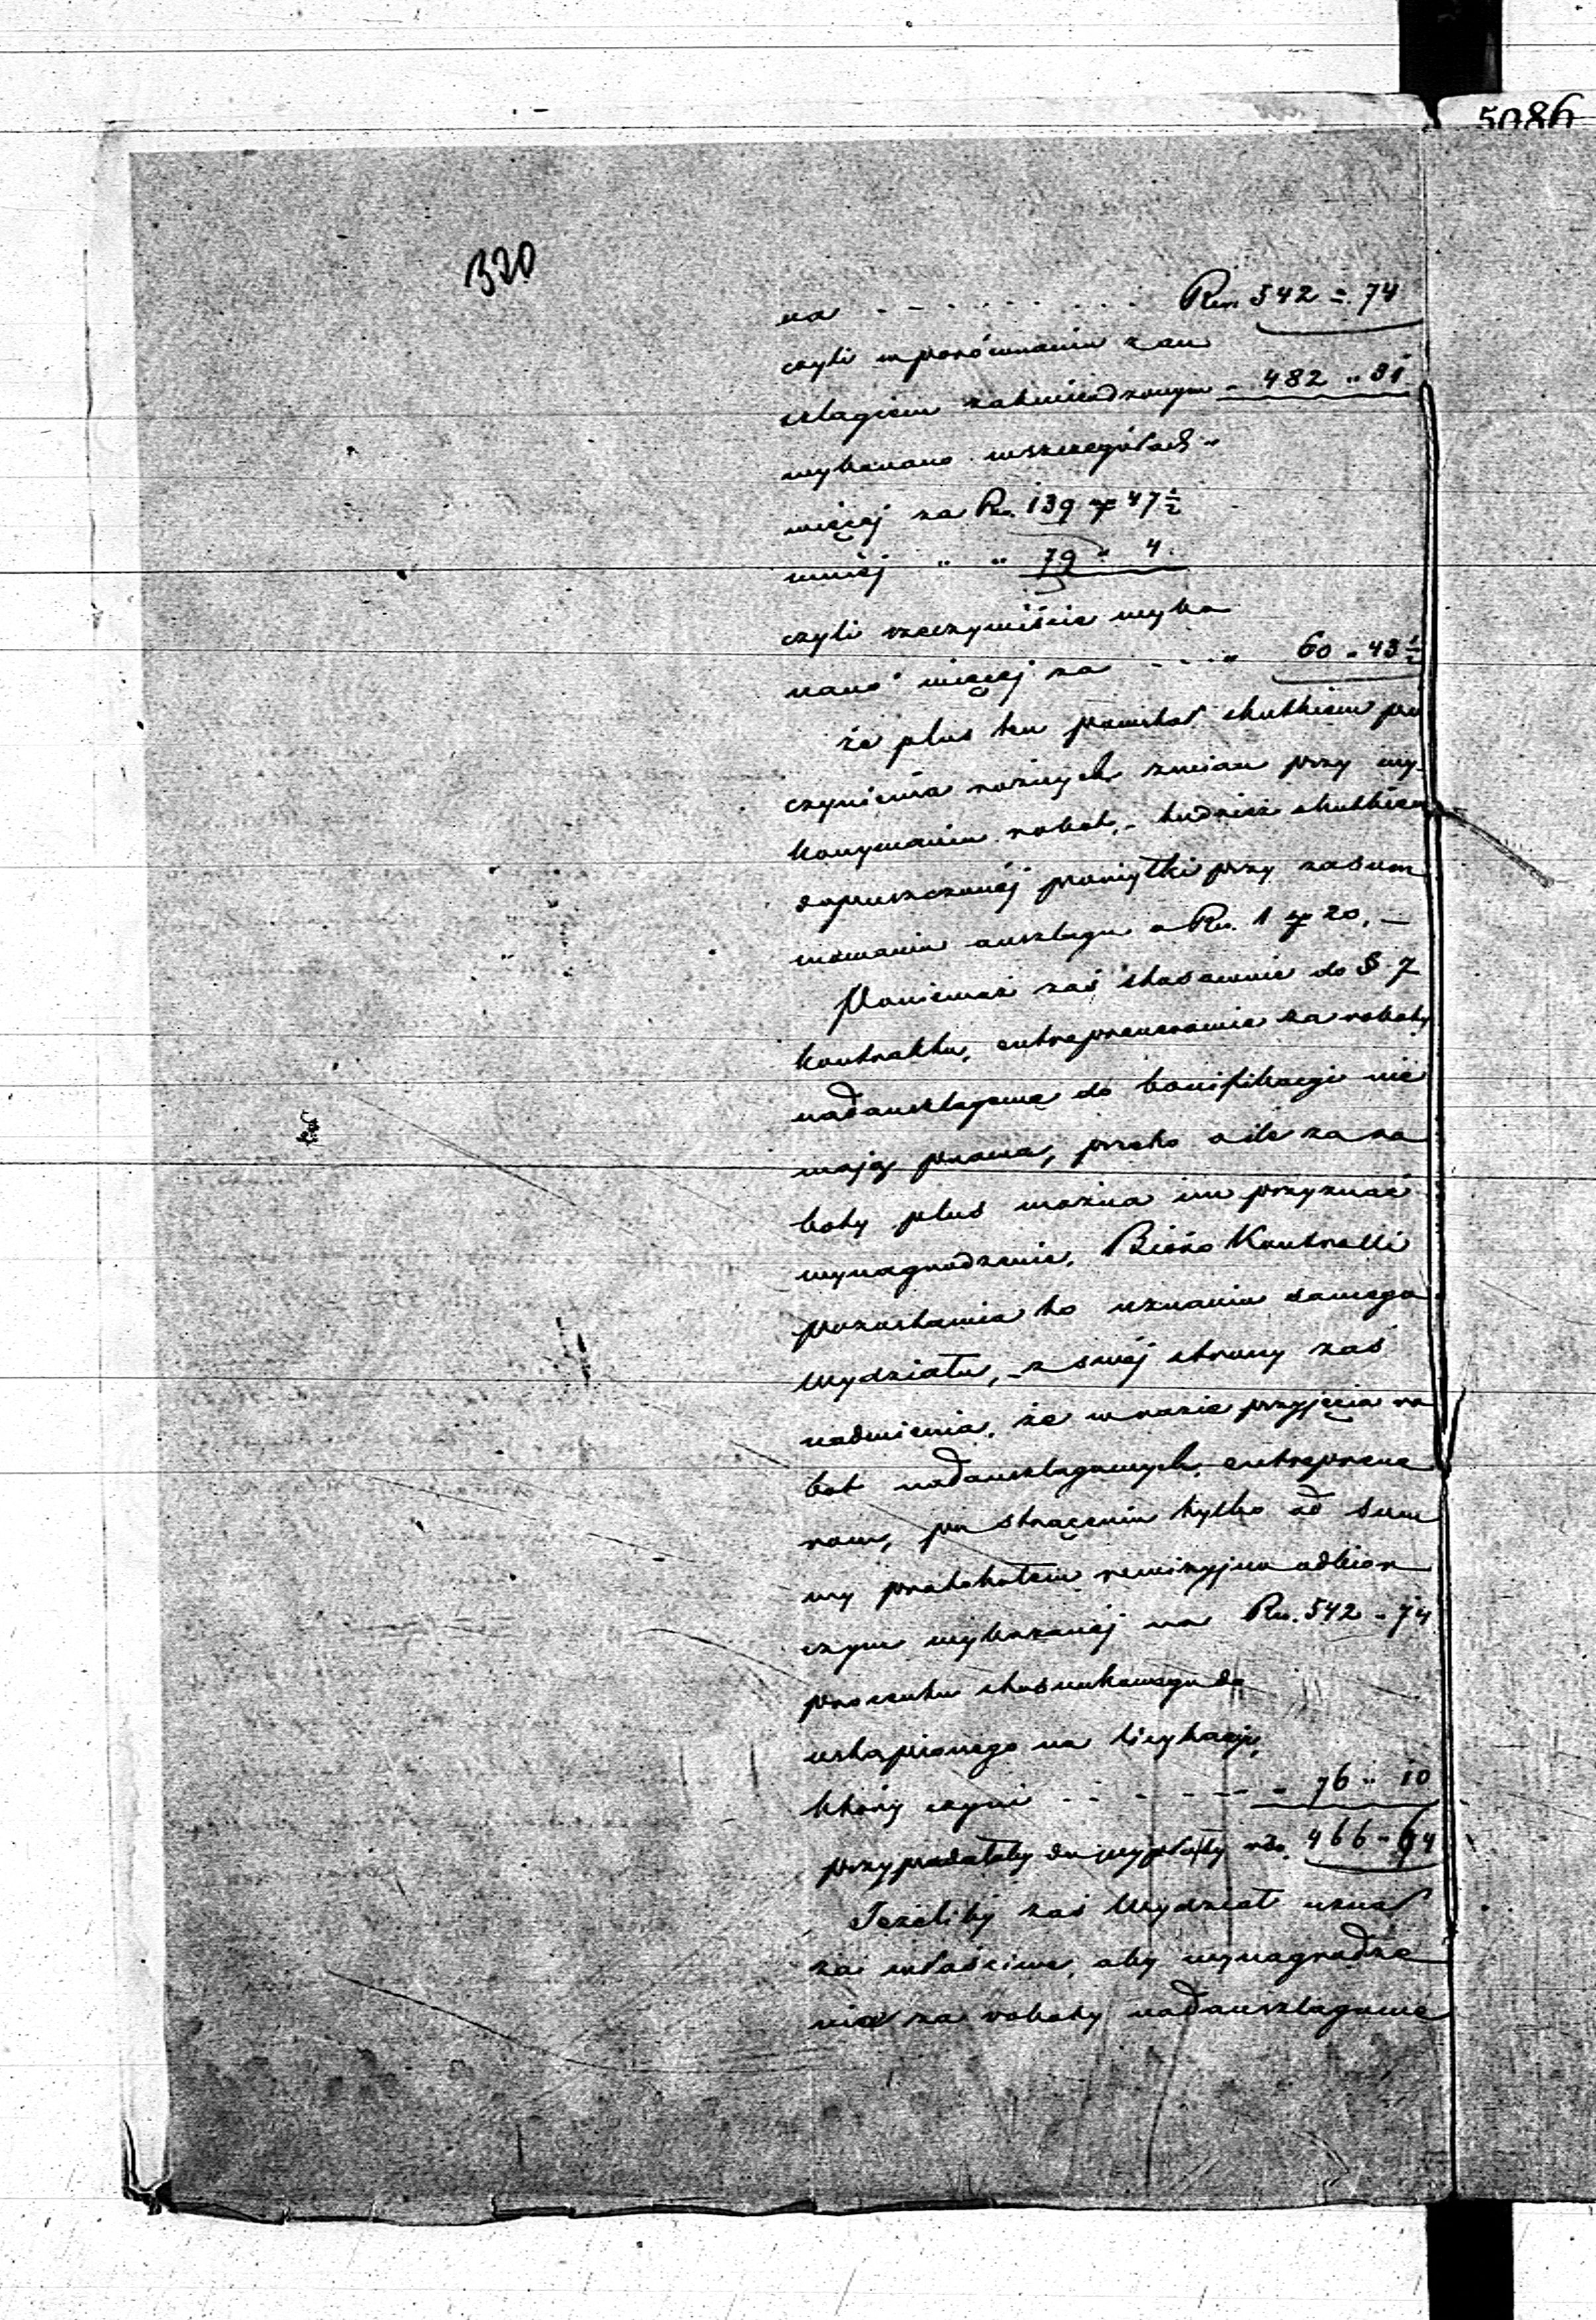 5086
320
na - - - - - - - - - Rsr. 542 = 74
czyli w porównaniu z an
szlagiem zatwierdzonym - 482 " 31
wykonano w szczegółach -
więcej za Rsr. 139 kop 47 ½
mniej " " 79 " 4.
czyli rzeczywiście wyko
nano więcej za - - - " 60 " 43 ½
że plus ten powstał skutkiem po
czynienia rożnych zmian przy wy-
konywaniu robot, - tudzież skutkiem
dopuszczonéj pomyłki przy zasum
mowaniu anszlagu o Rsr. 1 kop 20, -
Ponieważ zaś stosownie do § 7
kontraktu, entreprenerowie za roboty
nadanszlagowe do bonifikacyi nie
mają prawa, przeto o ile za ro
boty plus można im przyznać
wynagrodzenie, Bióro Kontrolli
pozostawia to uznaniu samego
Wydziału, - z swéj strony zaś
nadmienia, że w razie przyjęcia ro
bot nadanszlagowych, entreprene
rom, po strąceniu tylko od sum
my protokołem rewizyjno odbior
czym wykazanéj na Rsr. 542 " 74
procentu stosunkowego do
ustąpionego na licytacyi,
który czyni - - - - - - - 76 " 10
przypadałoby do wypłaty rsr. 466 " 64
Jeżeliby zaś Wydział uznał
za właściwe, aby wynagrodze
nie za roboty nadanszlagowe